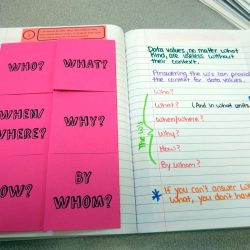 WHO?
WHAT?
WHEN/
WHERE?
WHY?
HOW?
BY
WHOM?
Data values, no matter what
kind, are useless without
their context.
Answering the w's can provide
the context for data values.
Who?
What? (And in what units
When/where?
Why?
How?
By Whom?
The W's
* If you can't answer
what, you don't have